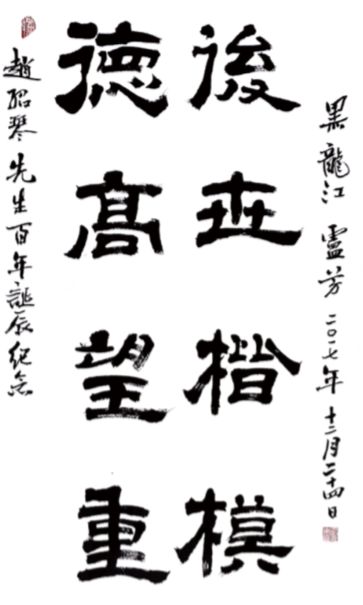 趙紹琴先生百年誕辰紀念
德高望重
後世楷模
黑龍江 盧芳 二〇一七年十二月二十四日